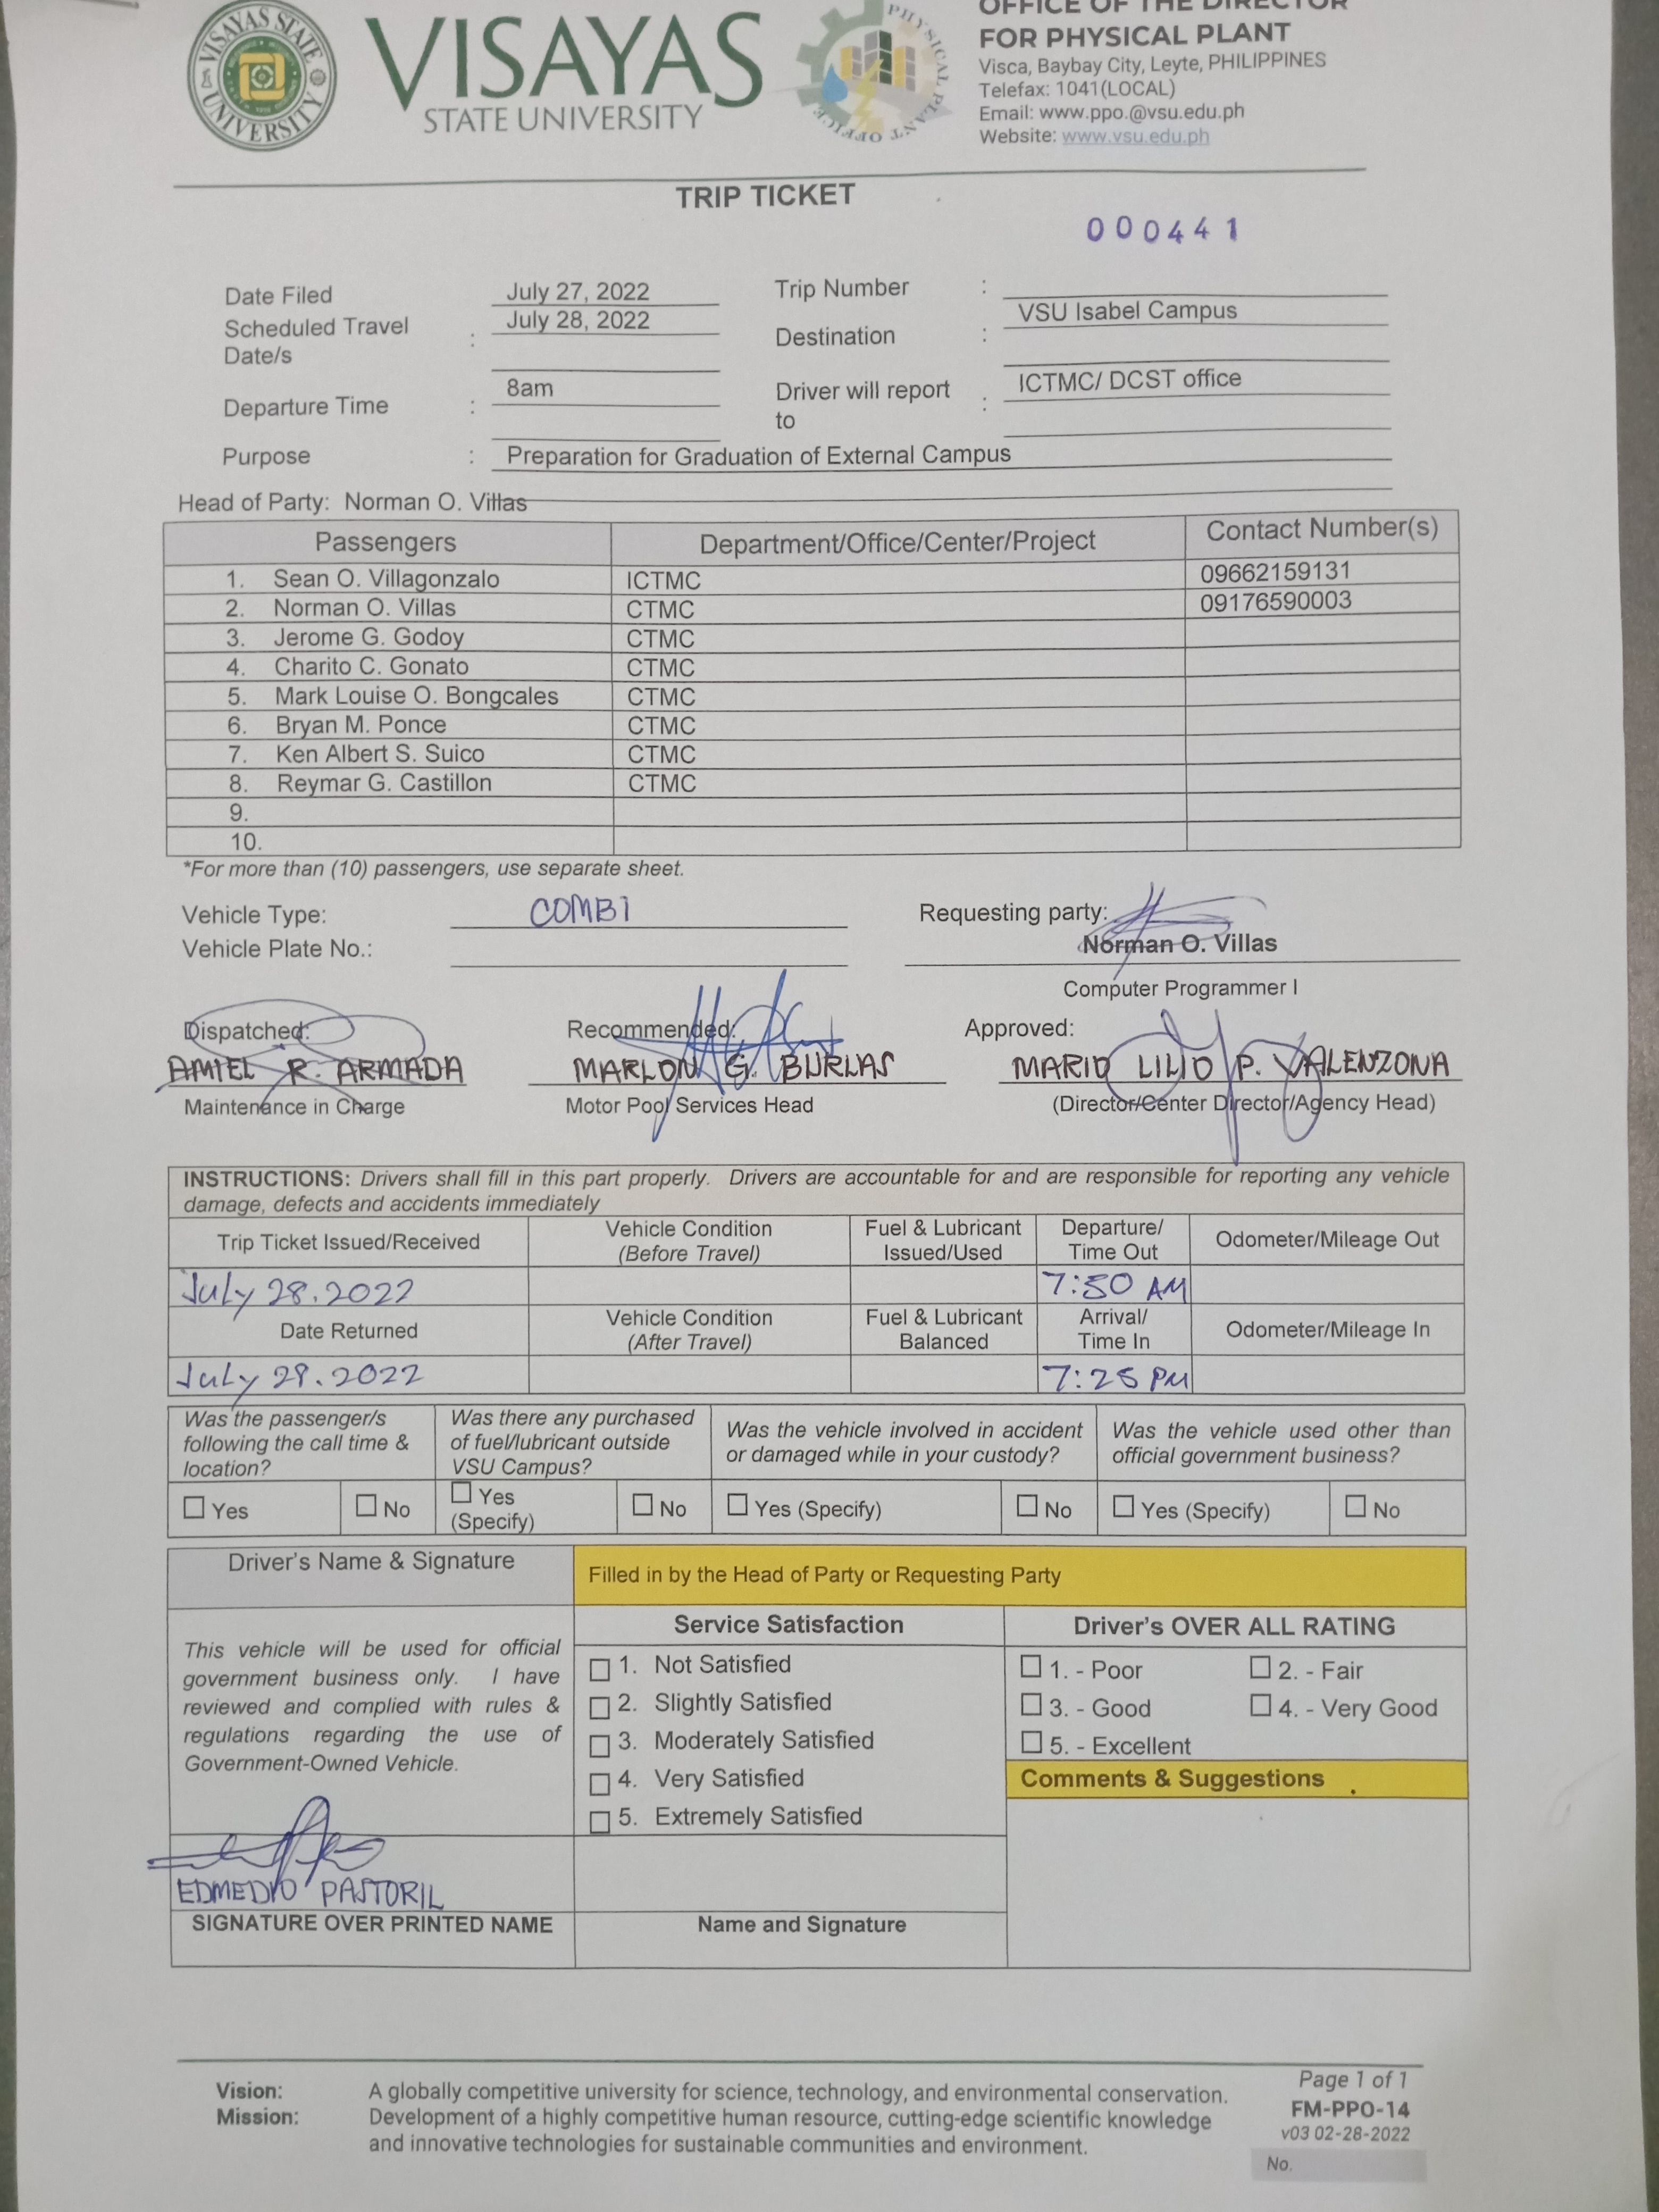 VISAYAS STATE UNIVERSITY
VISAYAS
STATE UNIVERSITY
PHYSICAL PLANT OFFICE
OFFICE OF THE DIRECTOR
FOR PHYSICAL PLANT
Visca, Baybay City, Leyte, PHILIPPINES
Telefax: 1041(LOCAL)
Email: www.ppo.@vsu.edu.ph
Website: www.vsu.edu.ph
TRIP TICKET
000441
Date Filed July 27, 2022 Trip Number :
Scheduled Travel Date/s : July 28, 2022 Destination : VSU Isabel Campus
Departure Time : 8am Driver will report to : ICTMC/ DCST office
Purpose : Preparation for Graduation of External Campus
Head of Party: Norman O. Villas
Passengers Department/Office/Center/Project Contact Number(s)
1. Sean O. Villagonzalo ICTMC 09662159131
2. Norman O. Villas CTMC 09176590003
3. Jerome G. Godoy CTMC
4. Charito C. Gonato CTMC
5. Mark Louise O. Bongcales CTMC
6. Bryan M. Ponce CTMC
7. Ken Albert S. Suico CTMC
8. Reymar G. Castillon CTMC
9.
10.
*For more than (10) passengers, use separate sheet.
Vehicle Type: COMBI Requesting party:
Vehicle Plate No.: Norman O. Villas
Computer Programmer I
Dispatched: Recommended: Approved:
AMIEL R. ARMADA MARLON G. BURLAS MARIO LILIO P. VALENZONA
Maintenance in Charge Motor Pool Services Head (Director/Center Director/Agency Head)
INSTRUCTIONS: Drivers shall fill in this part properly. Drivers are accountable for and are responsible for reporting any vehicle
damage, defects and accidents immediately
Trip Ticket Issued/Received Vehicle Condition (Before Travel) Fuel & Lubricant Issued/Used Departure/ Time Out Odometer/Mileage Out
July 28.2022 7:50 AM
Date Returned Vehicle Condition (After Travel) Fuel & Lubricant Balanced Arrival/ Time In Odometer/Mileage In
July 29.2022 7:25 PM
Was the passenger/s following the call time & location? Was there any purchased of fuel/lubricant outside VSU Campus? Was the vehicle involved in accident or damaged while in your custody? Was the vehicle used other than official government business?
☐ Yes ☐ No ☐ Yes (Specify) ☐ No ☐ Yes (Specify) ☐ No ☐ Yes (Specify) ☐ No
Driver's Name & Signature Filled in by the Head of Party or Requesting Party
This vehicle will be used for official
government business only. I have
reviewed and complied with rules &
regulations regarding the use of
Government-Owned Vehicle.
EDMEDIO PASTORIL
SIGNATURE OVER PRINTED NAME
Service Satisfaction
☐ 1. Not Satisfied
☐ 2. Slightly Satisfied
☐ 3. Moderately Satisfied
☐ 4. Very Satisfied
☐ 5. Extremely Satisfied
Name and Signature
Driver's OVER ALL RATING
☐ 1. - Poor ☐ 2. - Fair
☐ 3. - Good ☐ 4. - Very Good
☐ 5. - Excellent
Comments & Suggestions
Vision: A globally competitive university for science, technology, and environmental conservation.
Mission: Development of a highly competitive human resource, cutting-edge scientific knowledge
and innovative technologies for sustainable communities and environment.
Page 1 of 1
FM-PPO-14
v03 02-28-2022
No.